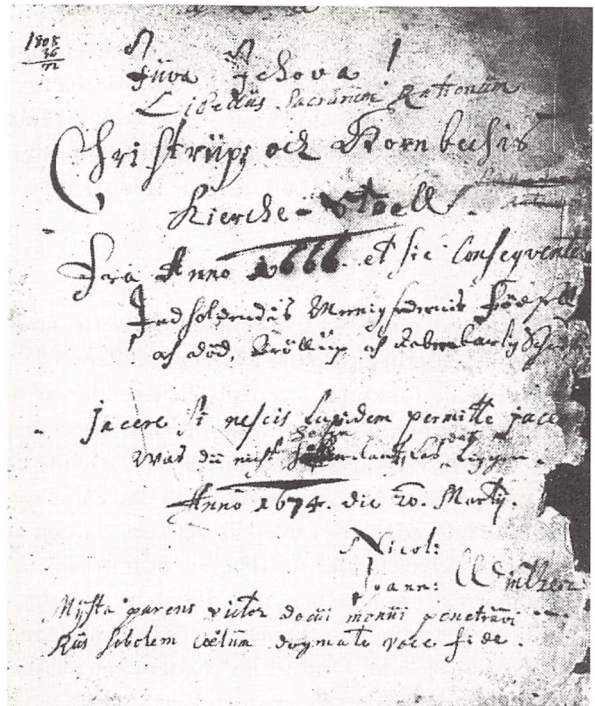 1808
36
72
Juva Jehova!
Libellus Sacrarum Rationum
Christrüps och Hornbechis
Kierche-Stoell
Fra Anno 1666 et sic Conseqventer
Indholdendis Menighedernis Fødsell
af død, Bröllüp
Jacere si nescis lapidem permitte jace
Was dü nicht das Liggen.
Anno 1674. die 20. Martij.
Nicol:
Joann: Winther
Mÿsta parens victor docüi monüi penetravi
Rüs sobolem cœlüm dogmate voce fide.